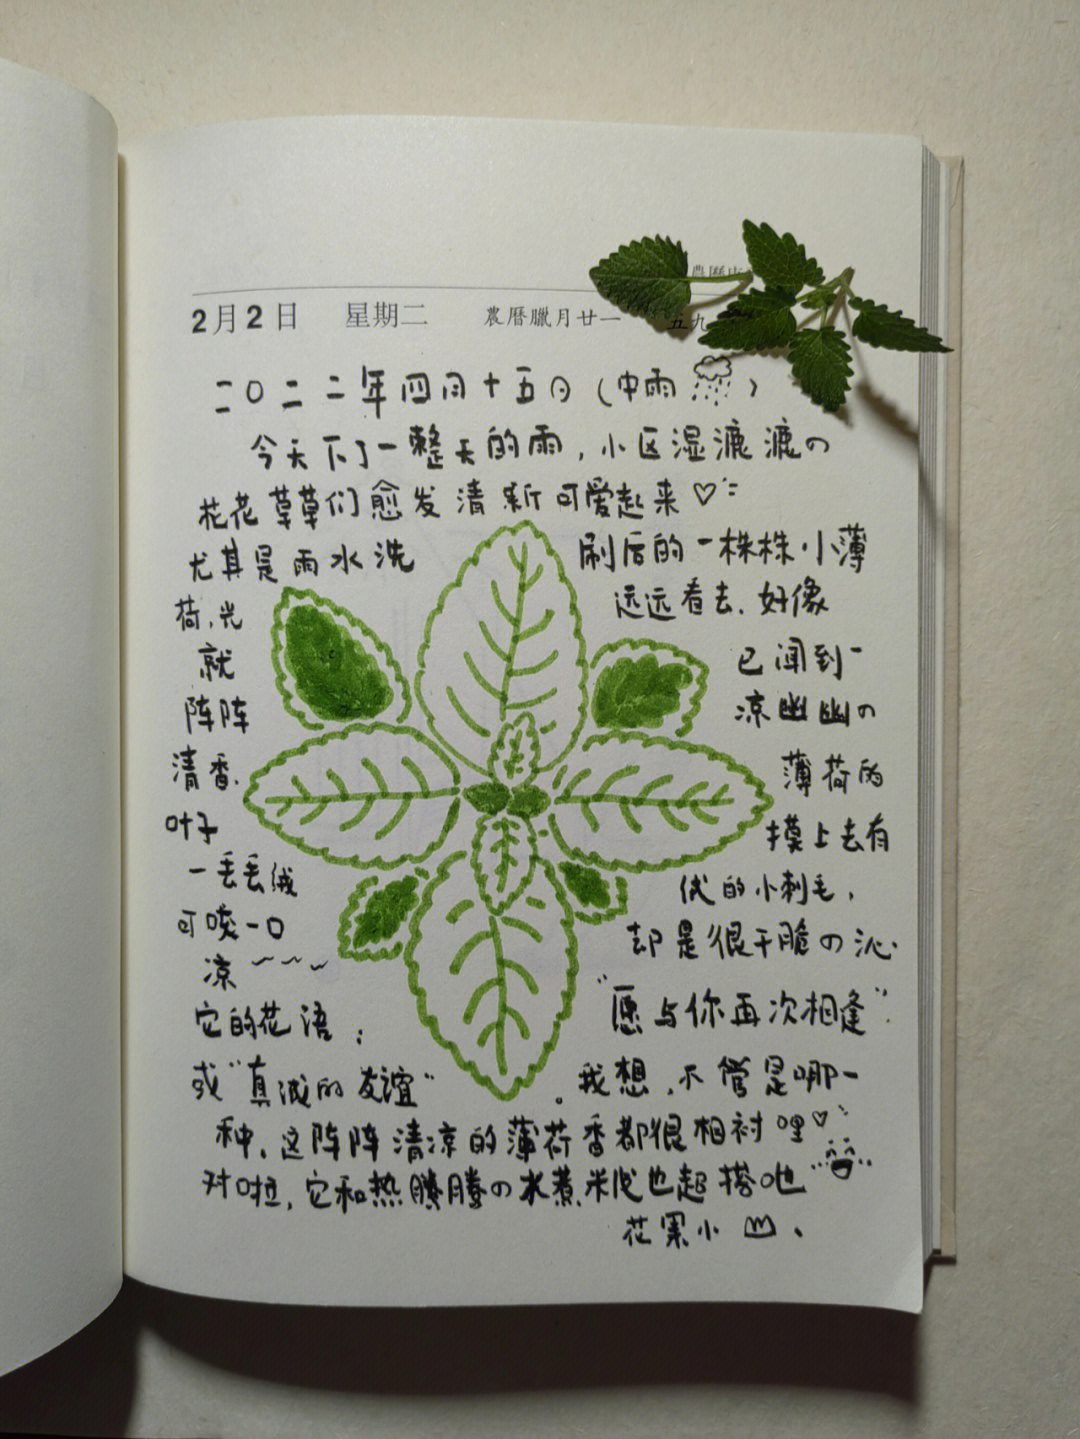 農曆
2月2日 星期二 農曆臘月廿一 五九
二〇二二年四月十五日（中雨）
今天下了一整天的雨，小区湿漉漉の
花花草草们愈发清新可爱起来♡
尤其是雨水洗 刷后的一株株小薄
荷，光 远远看去、好像
就 已闻到一
阵阵 凉幽幽の
清香. 薄荷的
叶子 摸上去有
一丢丢绒 绒的小刺毛，
可咬一口 却是很干脆の沁
凉~~~
它的花语： “愿与你再次相逢”
或“真诚的友谊” 。我想，不管是哪一
种、这阵阵清凉的薄荷香都很相衬哩♡
对啦，它和热腾腾の水煮米也超搭吔
花果小山、